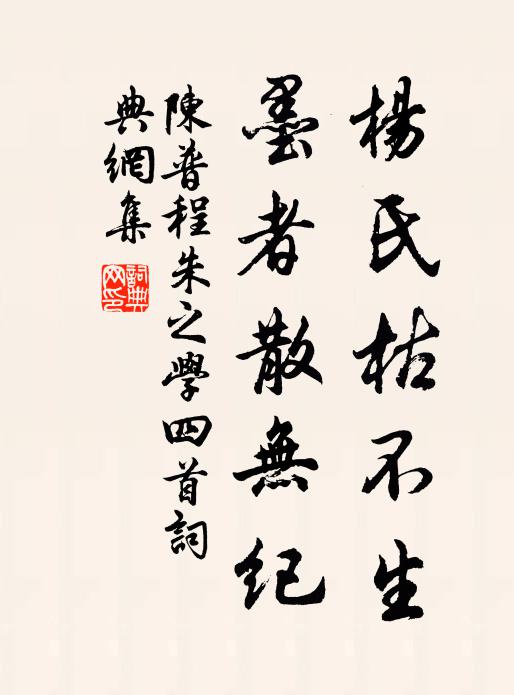 楊氏枯不生
墨者散無紀
陳普程朱之學四首詞
典網集
詞典
网印